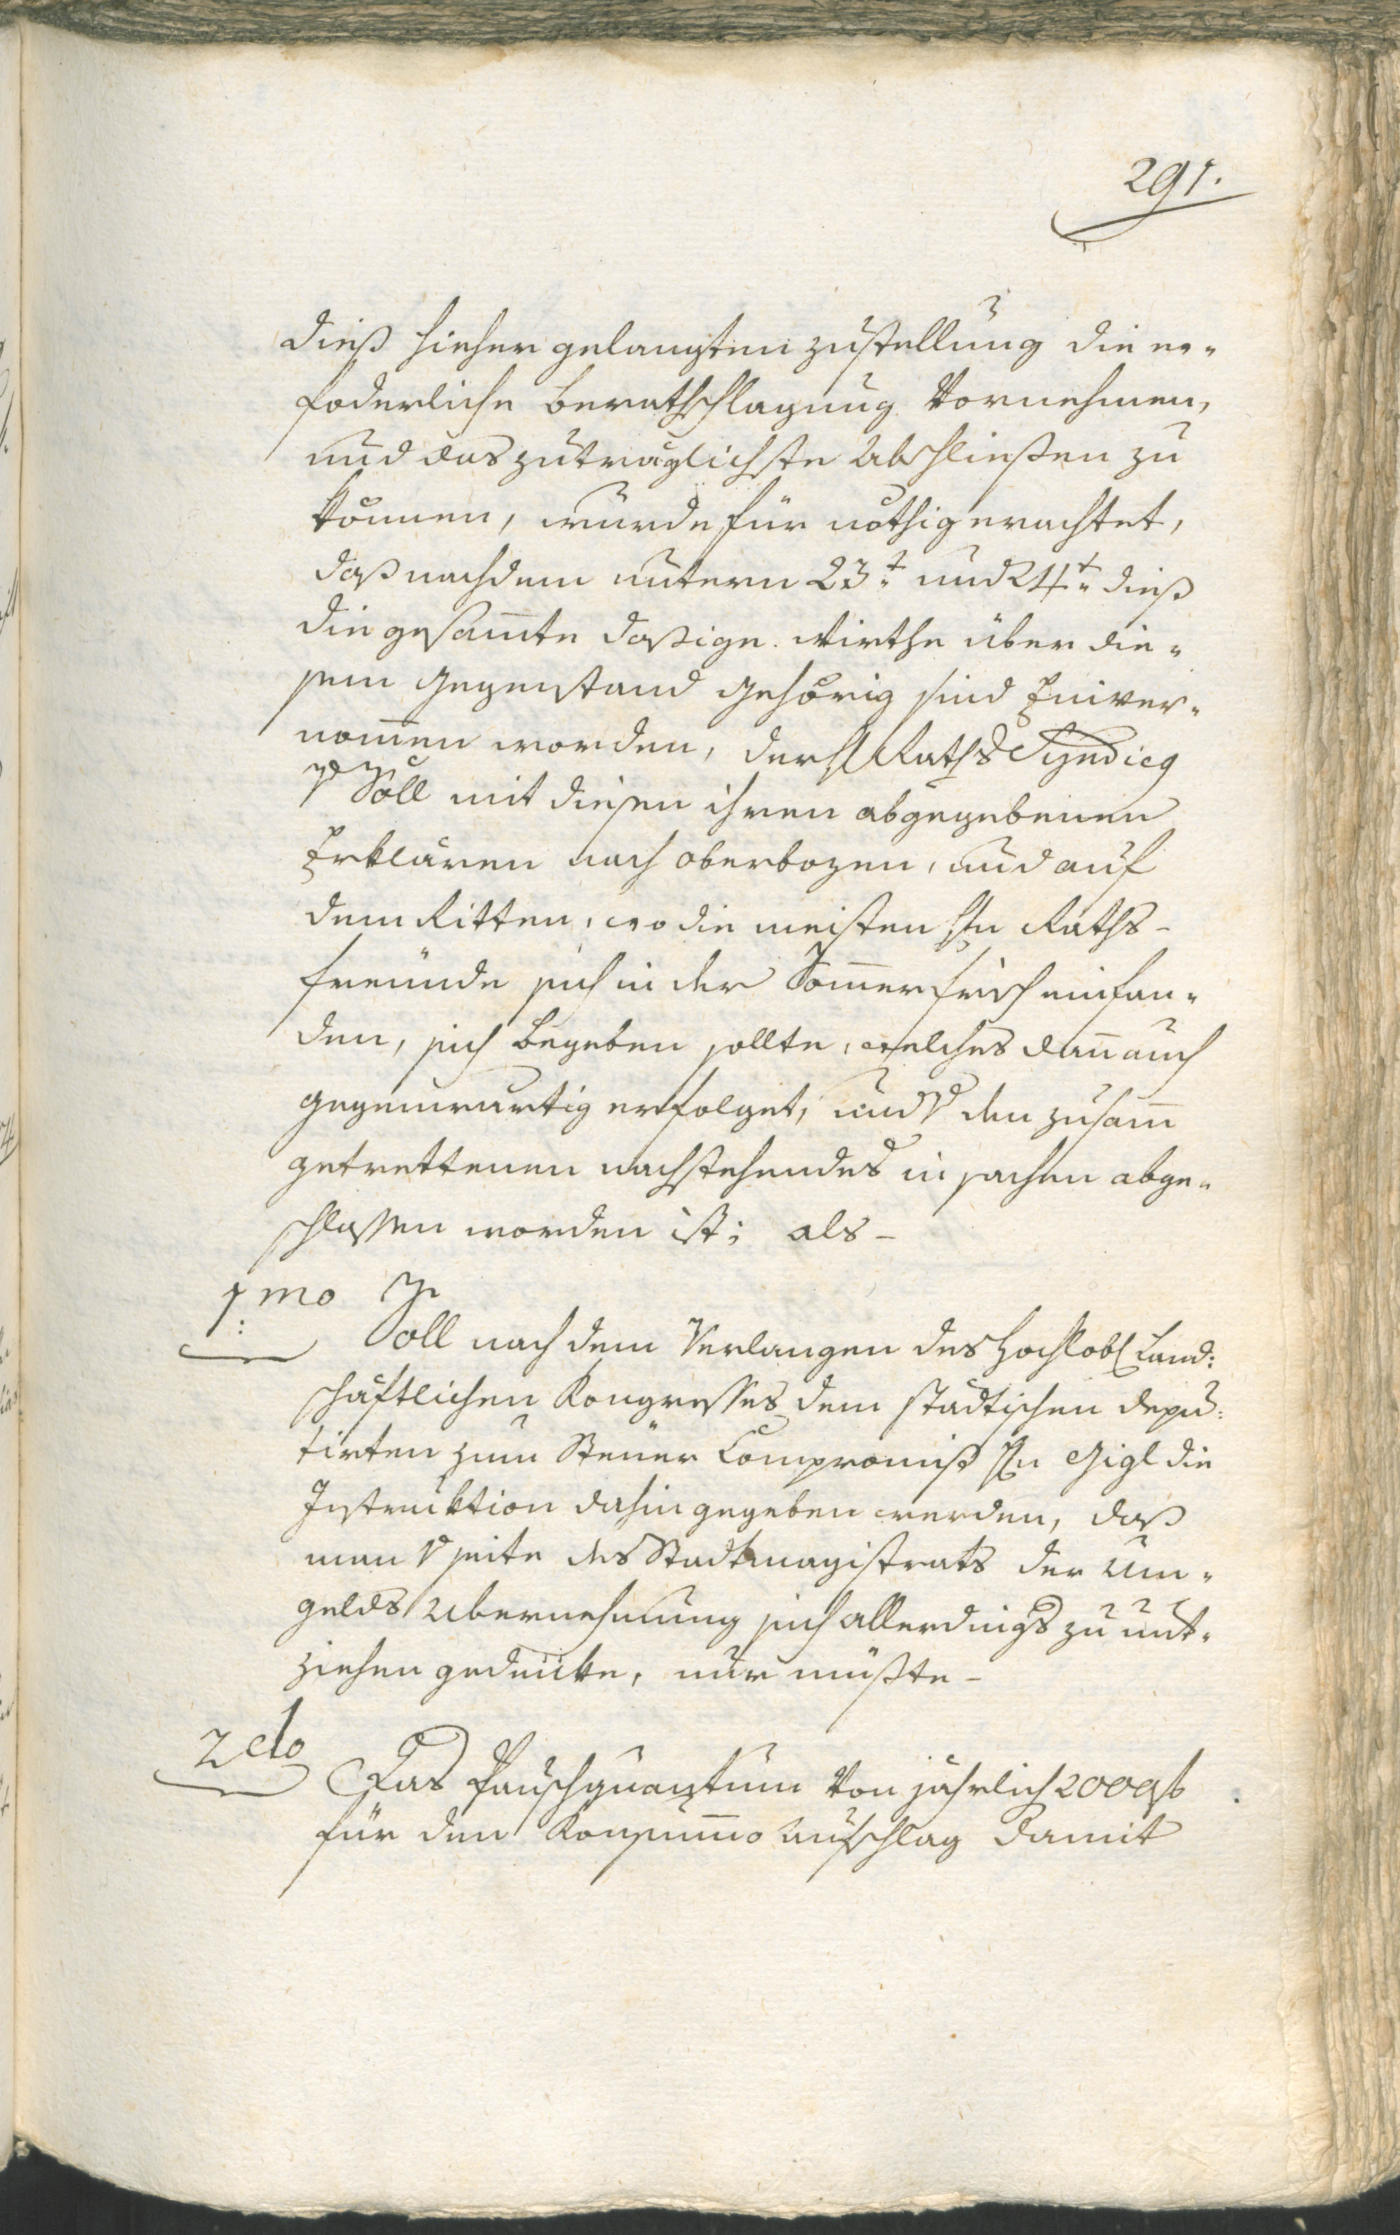 291.
dieß hieher gelangten zustellung die er-
foderliche berathschlagung Vornehmen,
und das zuträglichste Abschließen zu
können, wurde für nöthig erachtet,
daß nachdem untern 23t. und 24t. dieß
die gesam̅te dasige Wirthe über die-
sem Gegenstand Gehörig sind Einver-
nom̅en worden, der H Raths Syndicq
v Söll mit diesen ihren abgegebenen
Erklären nach oberbozen, und auf
dem Ritten, wo die meisten Hn Raths-
freünde sich in der Som̅erfrisch einfan-
den, sich begeben sollte, welches dan̅ auch
gegenwärtig erfolget, und v den zusam̅
getrettenen nachstehendes in sachen abge-
schlossen worden ist; als-
1:mo Soll nach dem Verlangen des Hochlobl Land:
schäftlichen Kongresses dem städtischen depu:
tirten zum Steüer Compromiß Hn Gigl die
Instruktion dahin gegeben werden, daß
man v seite des Stadtmagistrats der Um-
gelds Übernehmung sich allerdings zu unt-
ziehen gedenke, nur müßte-
2do Das Pauschquantum Von jährlich 200
für den Konsum̅o Aufschlag damit